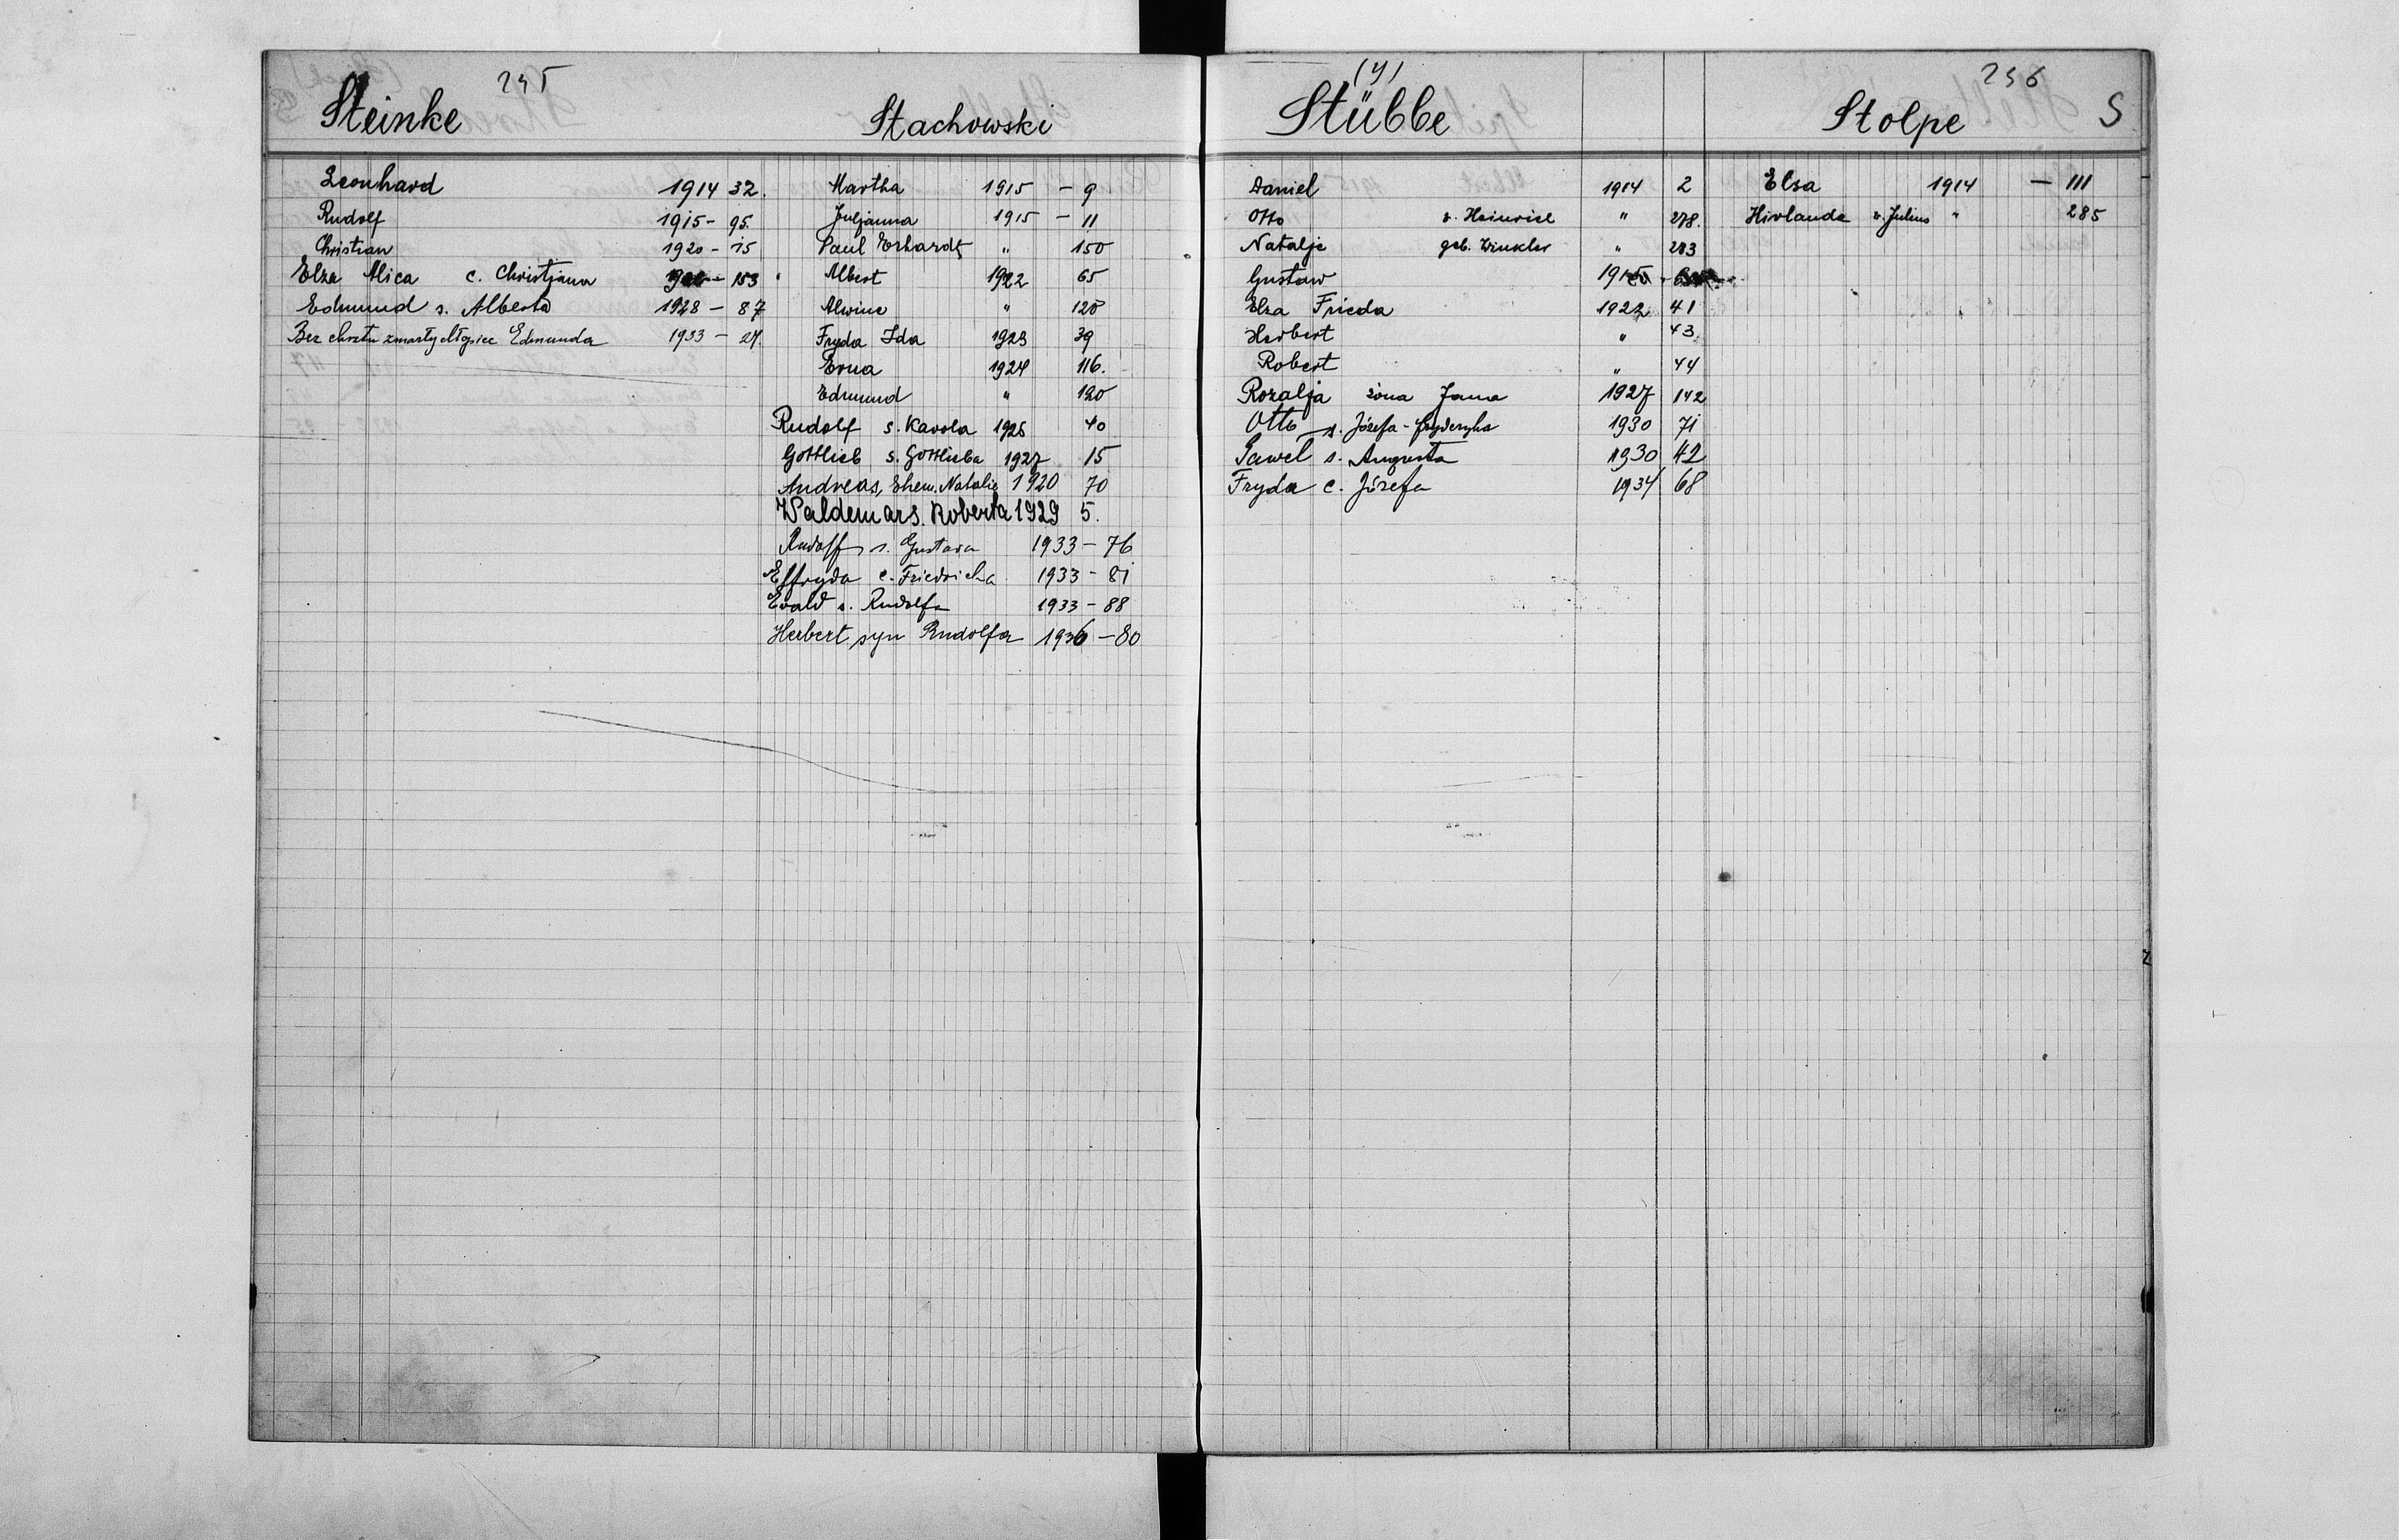 Steinke
Leonhard 1914 32.
Rudolf 1915 - 95.
Christian 1920 - 15
Elza Alica c. Christjana - 153
Edmund s. Alberta 1928 - 87
Bez chrztu zmarły chłopiec Edmunda 1933 - 24.
Stachowski
Martha 1915 - 9
Juljanna 1915 - 11
Paul Erhardt " 150
Albert 1922 65
Alwine " 120
Fryda Ida 1923 39
Erna 1924 116.
Edmund " 120
Rudolf s. Karola 1925 40
Gottlieb s. Gottlieba 1927 15
Andreas, Ehem. Natalie 1920 70
Waldemar s. Roberta 1929 5.
Rudolf s. Gustava 1933 - 76
Elfryda c. Friedricha 1933 - 81
Evald s. Rudolfa 1933 - 88
Herbert syn Rudolfa 1936 - 80
(y)
Stübbe
Daniel 1914 2
Otto v. Heinrich " 278.
Natalje geb. Winkler " 283
Gustaw
Elza Frieda 1922 41
Herbert " 43.
Robert " 44
Rozalja żona Jana 1927 142
Otto s. Józefa - Fryderyka 1930 71
Paweł s. Augusta 1930 42
Fryda c. Józefa 1934 68
236
Stolpe S
Elsa 1914 - 111
v. Julius " 285